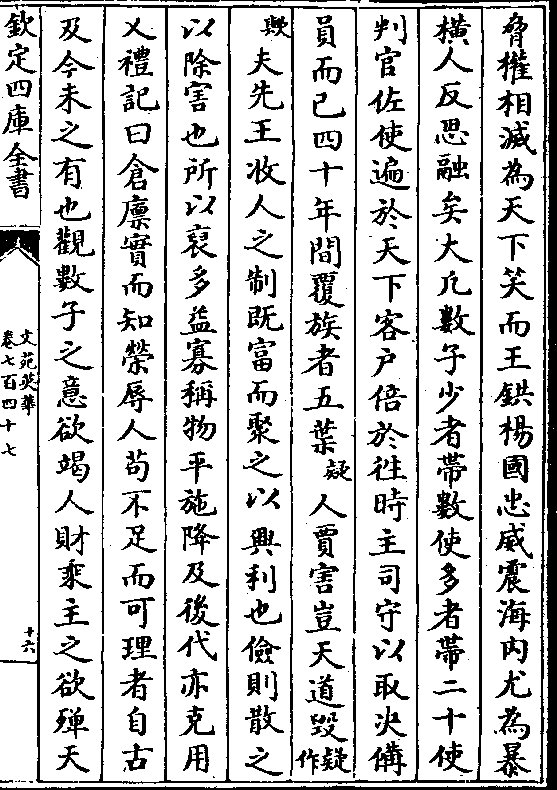 脅權相滅為天下笑而王鉷楊國忠威震海內尤為暴
橫人反思融矣大凡數子少者帶數使多者帶二十使
判官佐使遍於天下客户倍於徃時主司守以取决備
員而已四十年間覆族者五葉疑人賈害豈天道毀疑作
歟夫先王收人之制既富而聚之以興利也儉則散之
以除害也所以裒多益寡稱物平施降及後代亦克用
乂禮記曰倉廩實而知榮辱人苟不足而可理者自古
及今未之有也觀數子之意欲竭人財乘主之欲殫天
欽定四庫全書
文苑英華
卷七百四十七
十六